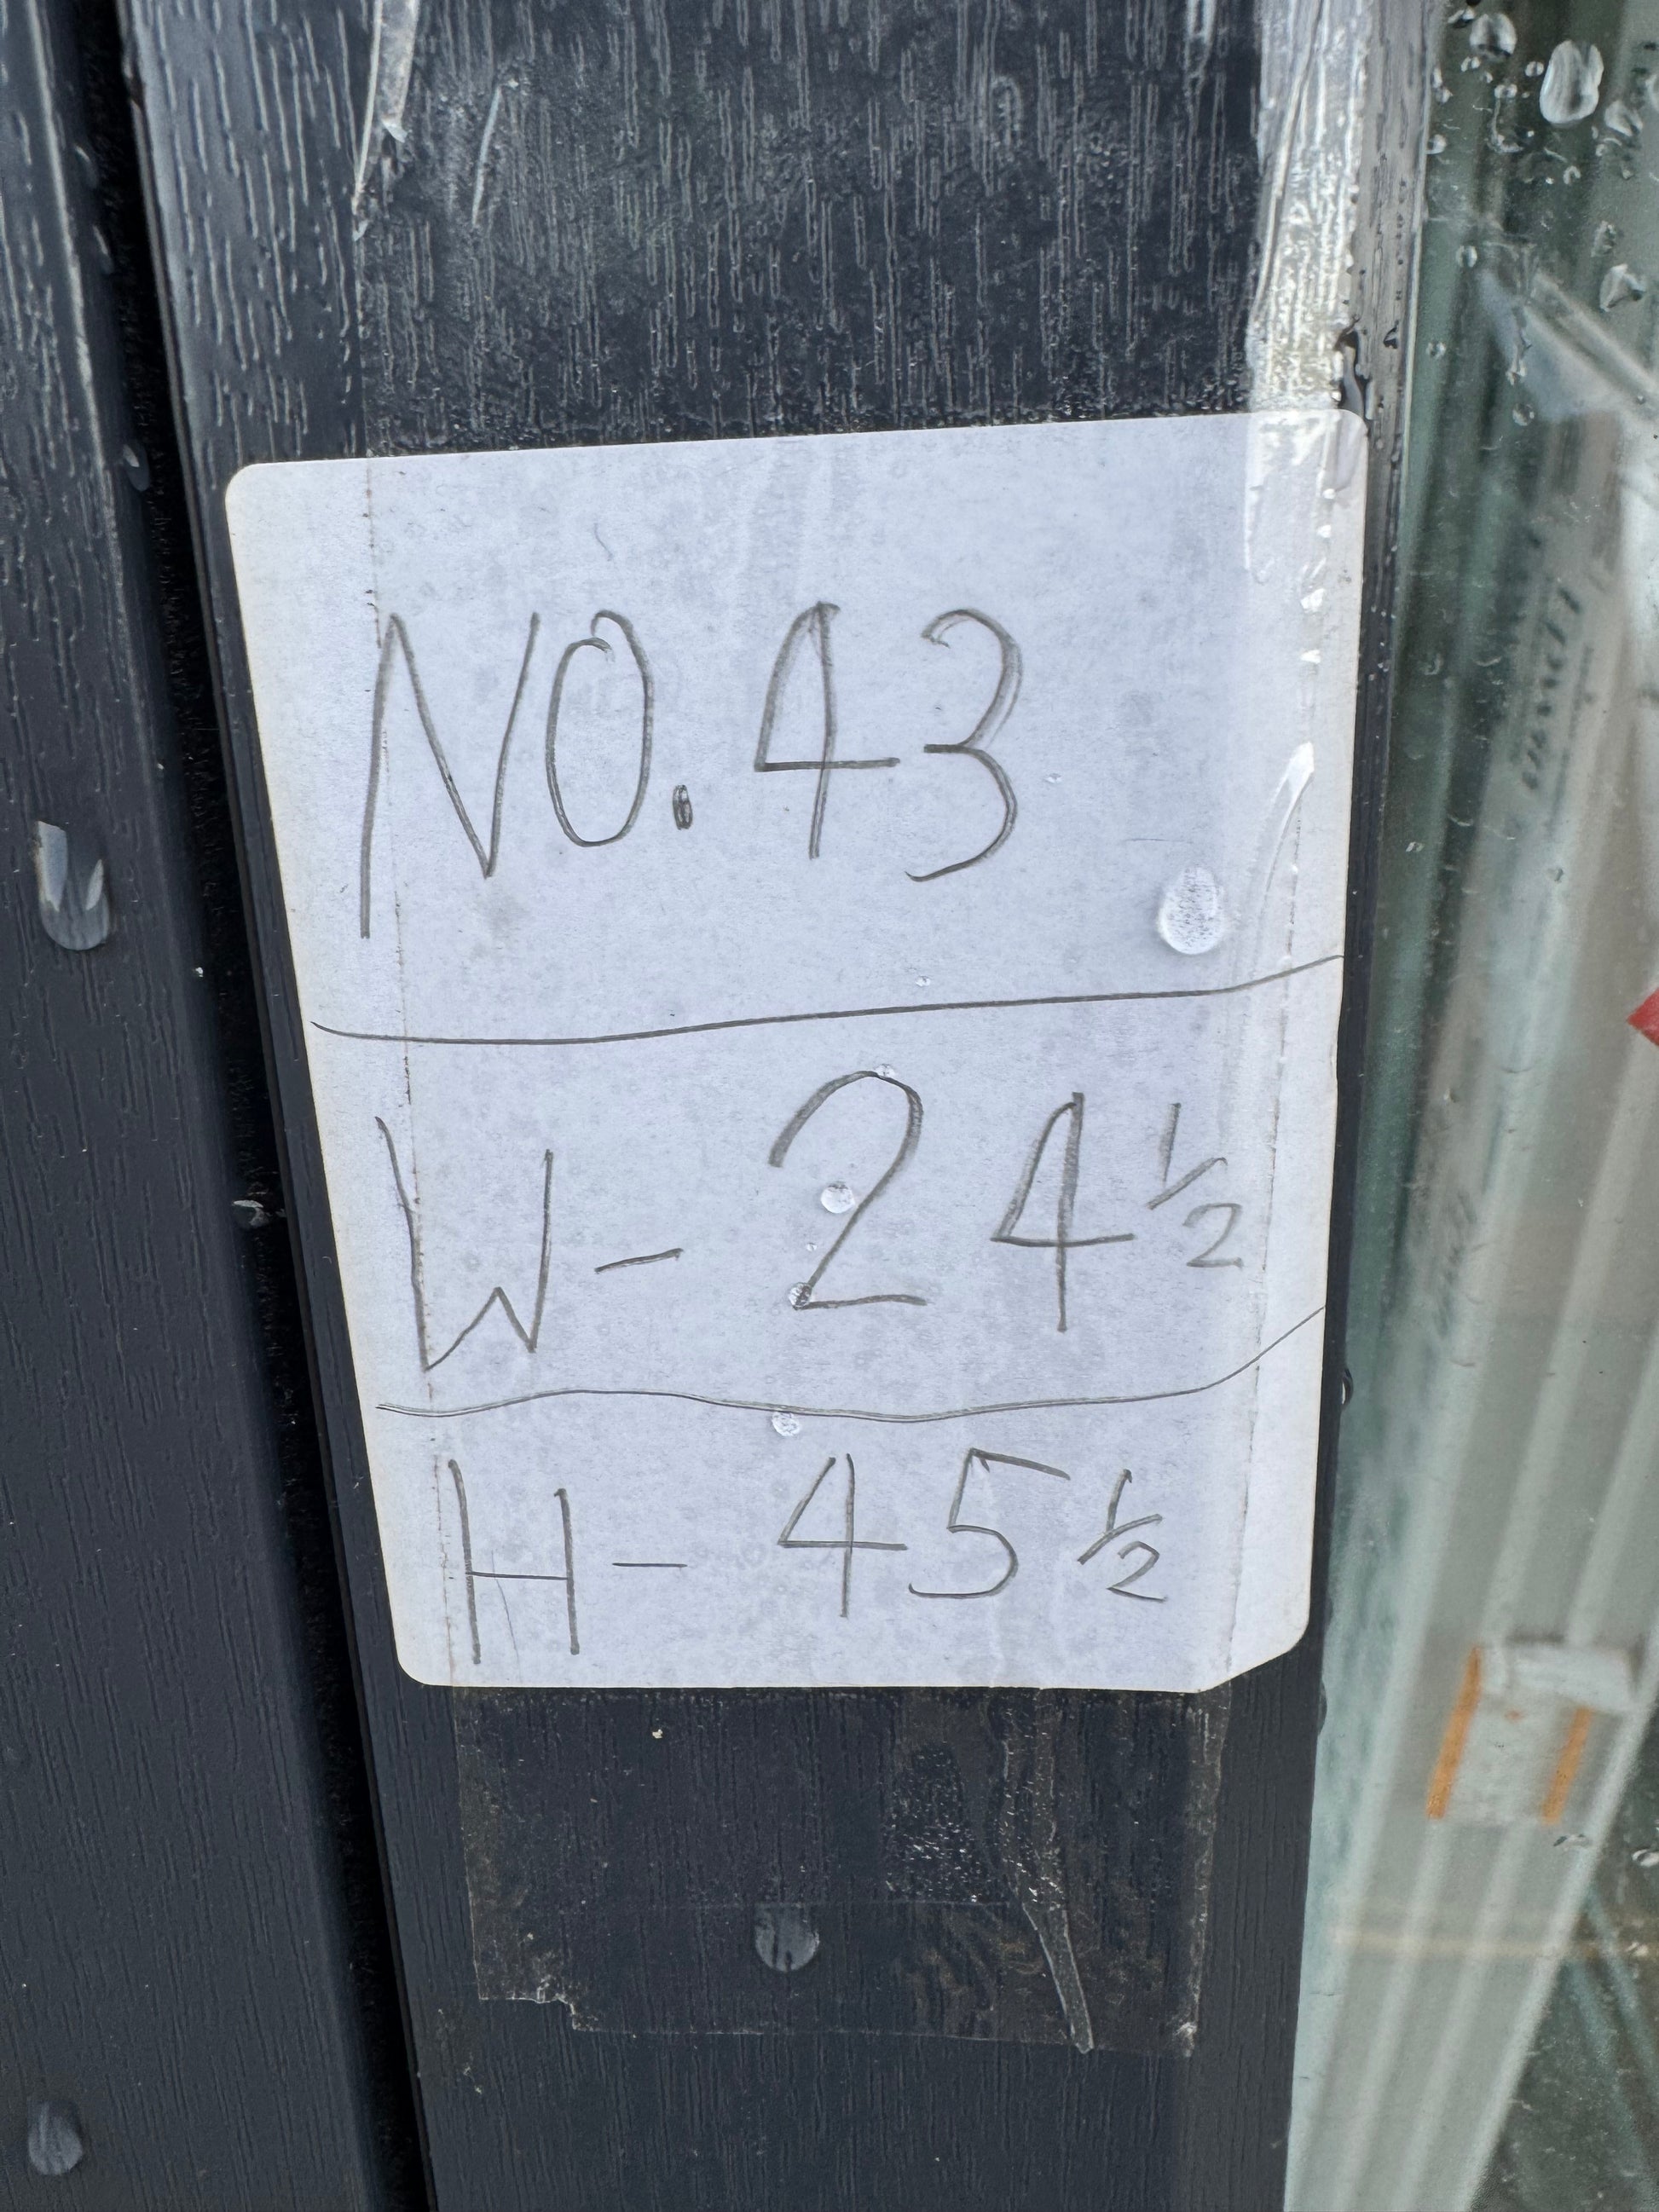 NO. 43
W - 24 1/2
H - 45 1/2